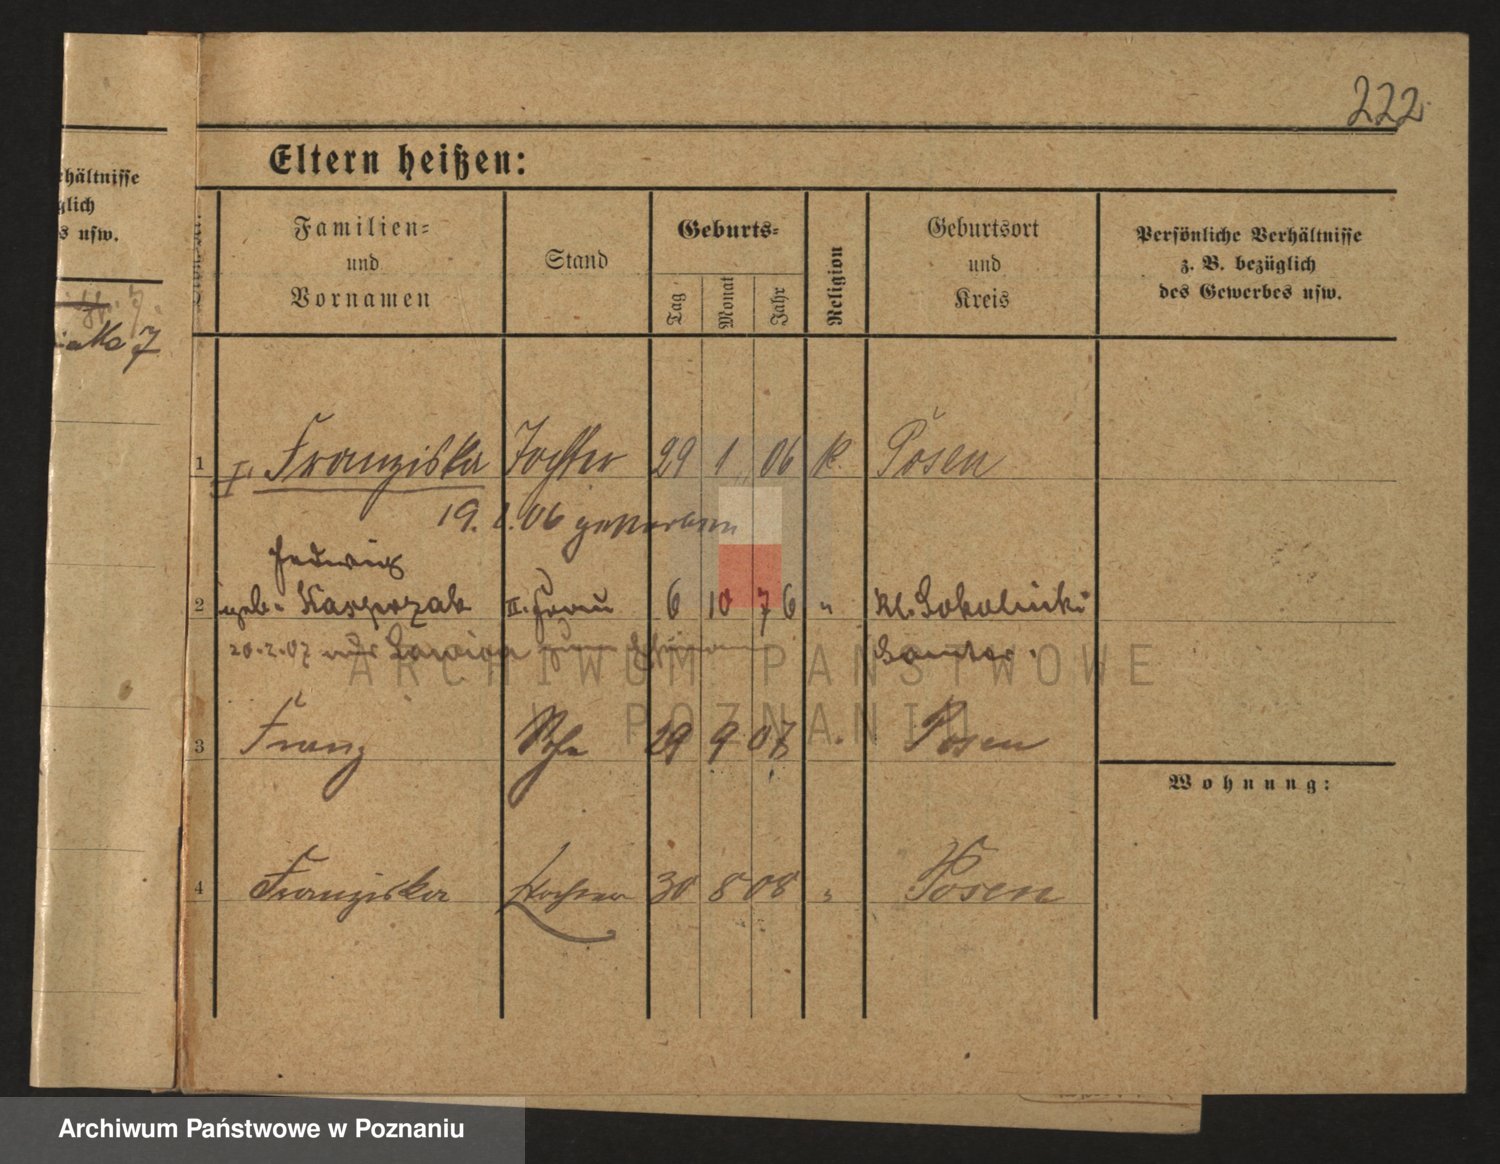 222.
Eltern heißen:
rhältnisse
glich
s usw.
Familien-
und
Vornamen
Stand
Geburts-
Tag
Monat
Jahr
Religion
Geburtsort
und
Kreis
Persönliche Verhältnisse
z. B. bezüglich
des Gewerbes usw.
1 Franziska Tochter 29 1 06 k. Posen
19. 2. 06 gestorben
Hedwig
2 geb. Kasperzak II. Frau 6 10 76 " Kl. Sokolnicki
20.2.07 Samter.
3 Franz Sohn 29 9 07 Posen
Wohnung:
4 Franziska Tochter 30 8 08 " Posen
ARCHIWUM PAŃSTWOWE
W POZNANIU
Archiwum Państwowe w Poznaniu